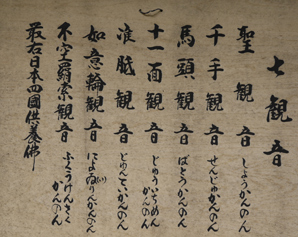 七觀音
聖觀音 しょうかんのん
千手觀音 せんじゅかんのん
馬頭觀音 ばとうかんのん
十一面觀音 じゅういちめんかんのん
准胝觀音 じゅんていかんのん
如意輪觀音 によゐ(い)りんかんのん
不空羂索觀音 ふくうけんさくかんのん
最右日本四國供養佛